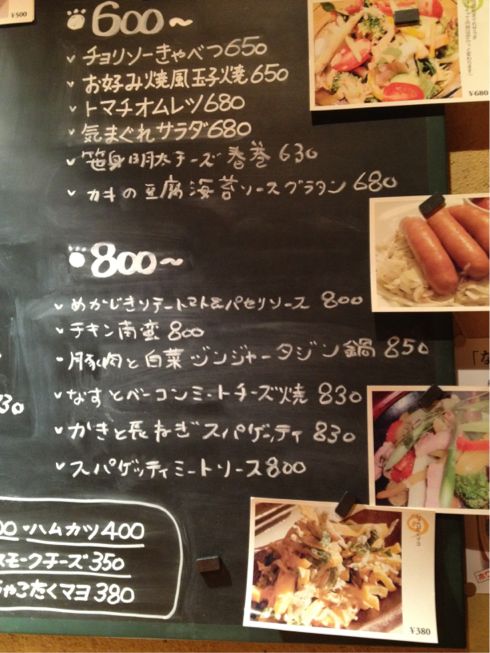 ¥500
600~
チョリソーきゃべつ650
お好み焼風玉子焼650
トマチオムレツ680
気まぐれサラダ680
笹身明太チーズ春巻 630
カキの豆腐海苔ソースグラタン 680
¥680
800~
めかじきソテートマト&パセリソース 800
チキン南蛮 800
豚肉と白菜ジンジャータジン鍋 850
30
なすとベーコンミートチーズ焼 830
かきと長ねぎスパゲッティ 830
スパゲッティミートソース800
00・ハムカツ400
スモークチーズ350
ちゃこたくマヨ 380
¥380
「な